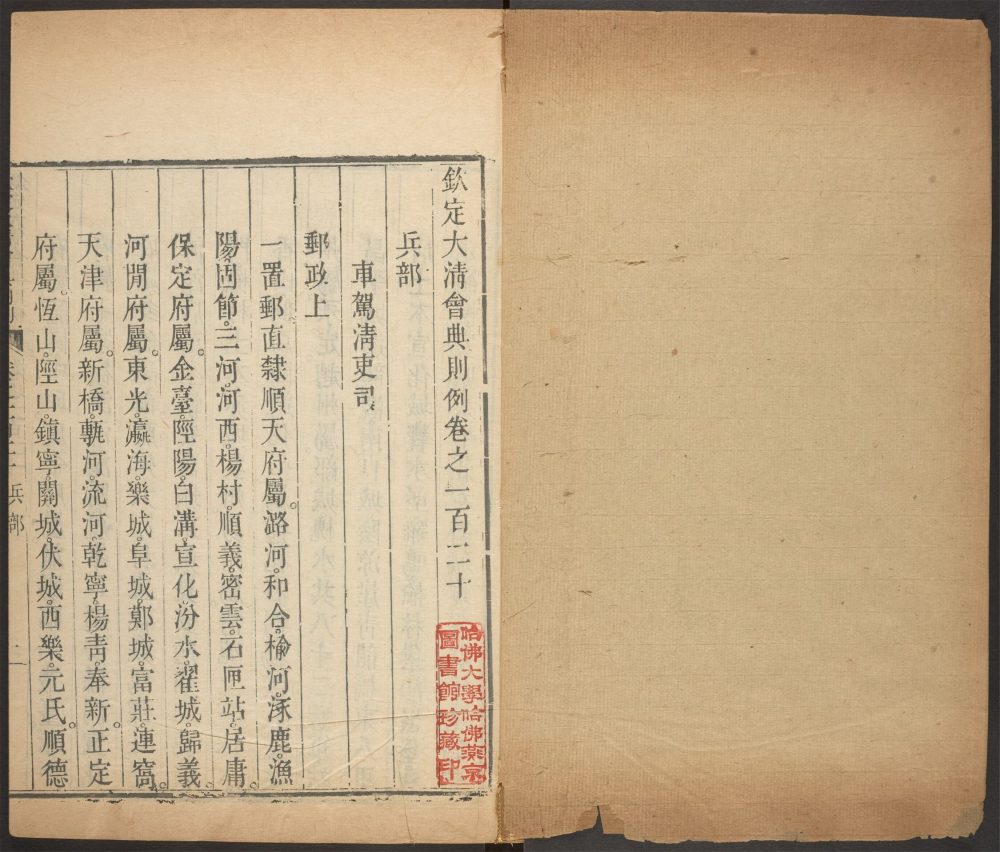 欽定大清會典則例卷之一百二十
哈佛大學哈佛燕京
圖書館珍藏印
兵部
車駕清吏司
郵政上
一置郵直隸順天府屬。潞河。和合。榆河。涿鹿。漁
陽。固節。三河。河西。楊村。順義。密雲。石匣站。居庸。
保定府屬。金臺。陘陽。白溝。宣化。汾水。翟城。歸義。
河閒府屬。東光。瀛海。樂城。阜城。鄚城。富莊。連窩。
天津府屬。新橋。甎河。流河。乾寧。楊青。奉新。正定
府屬。恆山。陘山。鎮寧。關城。伏城。西樂。元氏。順德
兵部